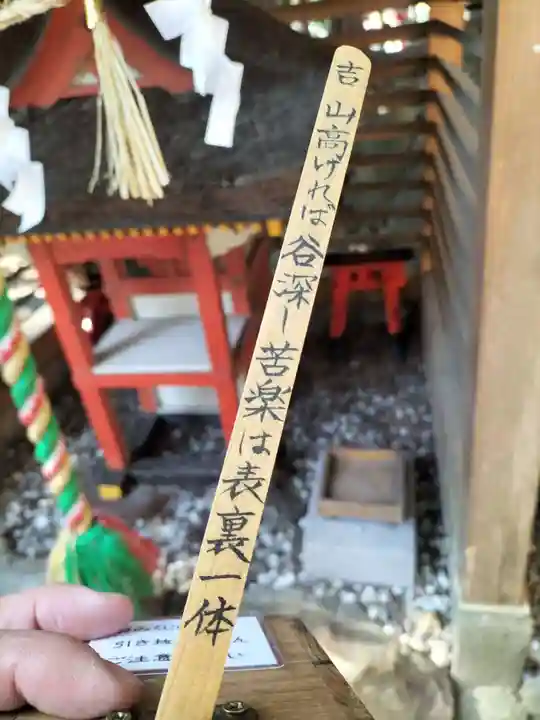 吉 山高ければ谷深し苦楽は表裏一体
引き抜
ご注意